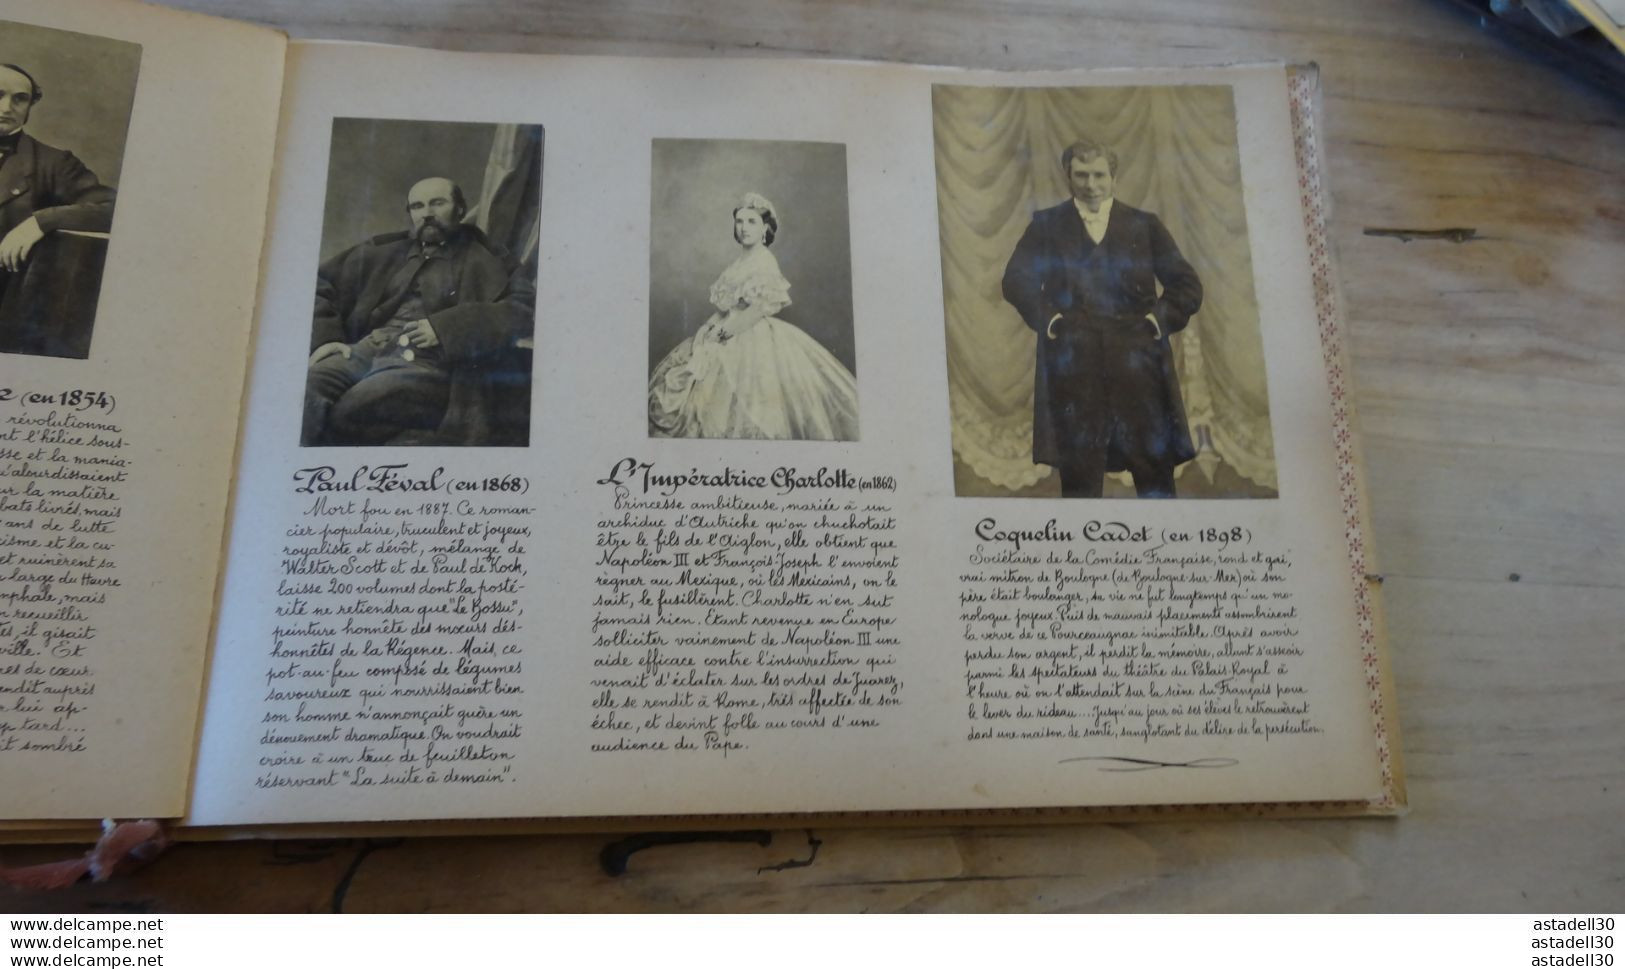 (en 1854)
révolutionna
l'hélice sous-
sse et la mania-
alourdissaient
la matière
livrés, mais
ans de lutte
cisme et la cu-
et ruinèrent sa
large du Havre
mphale, mais
recueillir
il gisait
ville." Et
de cœur.
auprès
lui ap-
tard...
it sombré
Paul Féval (en 1868)
Mort fou en 1887. Ce roman-
cier populaire, truculent et joyeux,
royaliste et dévôt, mélange de
Walter Scott et de Paul de Kock,
laisse 200 volumes dont la posté-
rité ne retiendra que "Le Bossu",
peinture honnête des mœurs dés-
honnêtes de la Régence. Mais, ce
pot-au-feu composé de légumes
savoureux qui nourrissaient bien
son homme n'annonçait guère un
dénouement dramatique. On voudrait
croire à un truc de feuilleton
réservant "La suite à demain".
L'Impératrice Charlotte (en 1862)
Princesse ambitieuse, mariée à un
archiduc d'Autriche qu'on chuchotait
être le fils de l'Aiglon, elle obtient que
Napoléon III et François-Joseph l'envoient
régner au Mexique, où les Mexicains, on le
sait, le fusillèrent. Charlotte n'en sut
jamais rien. Etant revenue en Europe
solliciter vainement de Napoléon III une
aide efficace contre l'insurrection qui
venait d'éclater sur les ordres de Juarez,
elle se rendit à Rome, très affectée de son
échec, et devint folle au cours d'une
audience du Pape.
Coquelin Cadet (en 1898)
Sociétaire de la Comédie Française, rond et gai,
vrai mitron de Boulogne (de Boulogne-sur-Mer) où son
père était boulanger, sa vie ne fut longtemps qu'un mo-
nologue joyeux. Puis de mauvais placements assombrirent
la verve de ce Pourceaugnac inimitable. Après avoir
perdu son argent, il perdit la mémoire, allant s'asseoir
parmi les spectateurs du théâtre du Palais-Royal à
l'heure où on l'attendait sur la scène du Français pour
le lever du rideau.... Jusqu'au jour où ses élèves le retrouvèrent
dans une maison de santé, sanglotant du délire de la persécution.
www.delcampe.net
www.delcampe.net
www.delcampe.net
astadell30
astadell30
astadell30